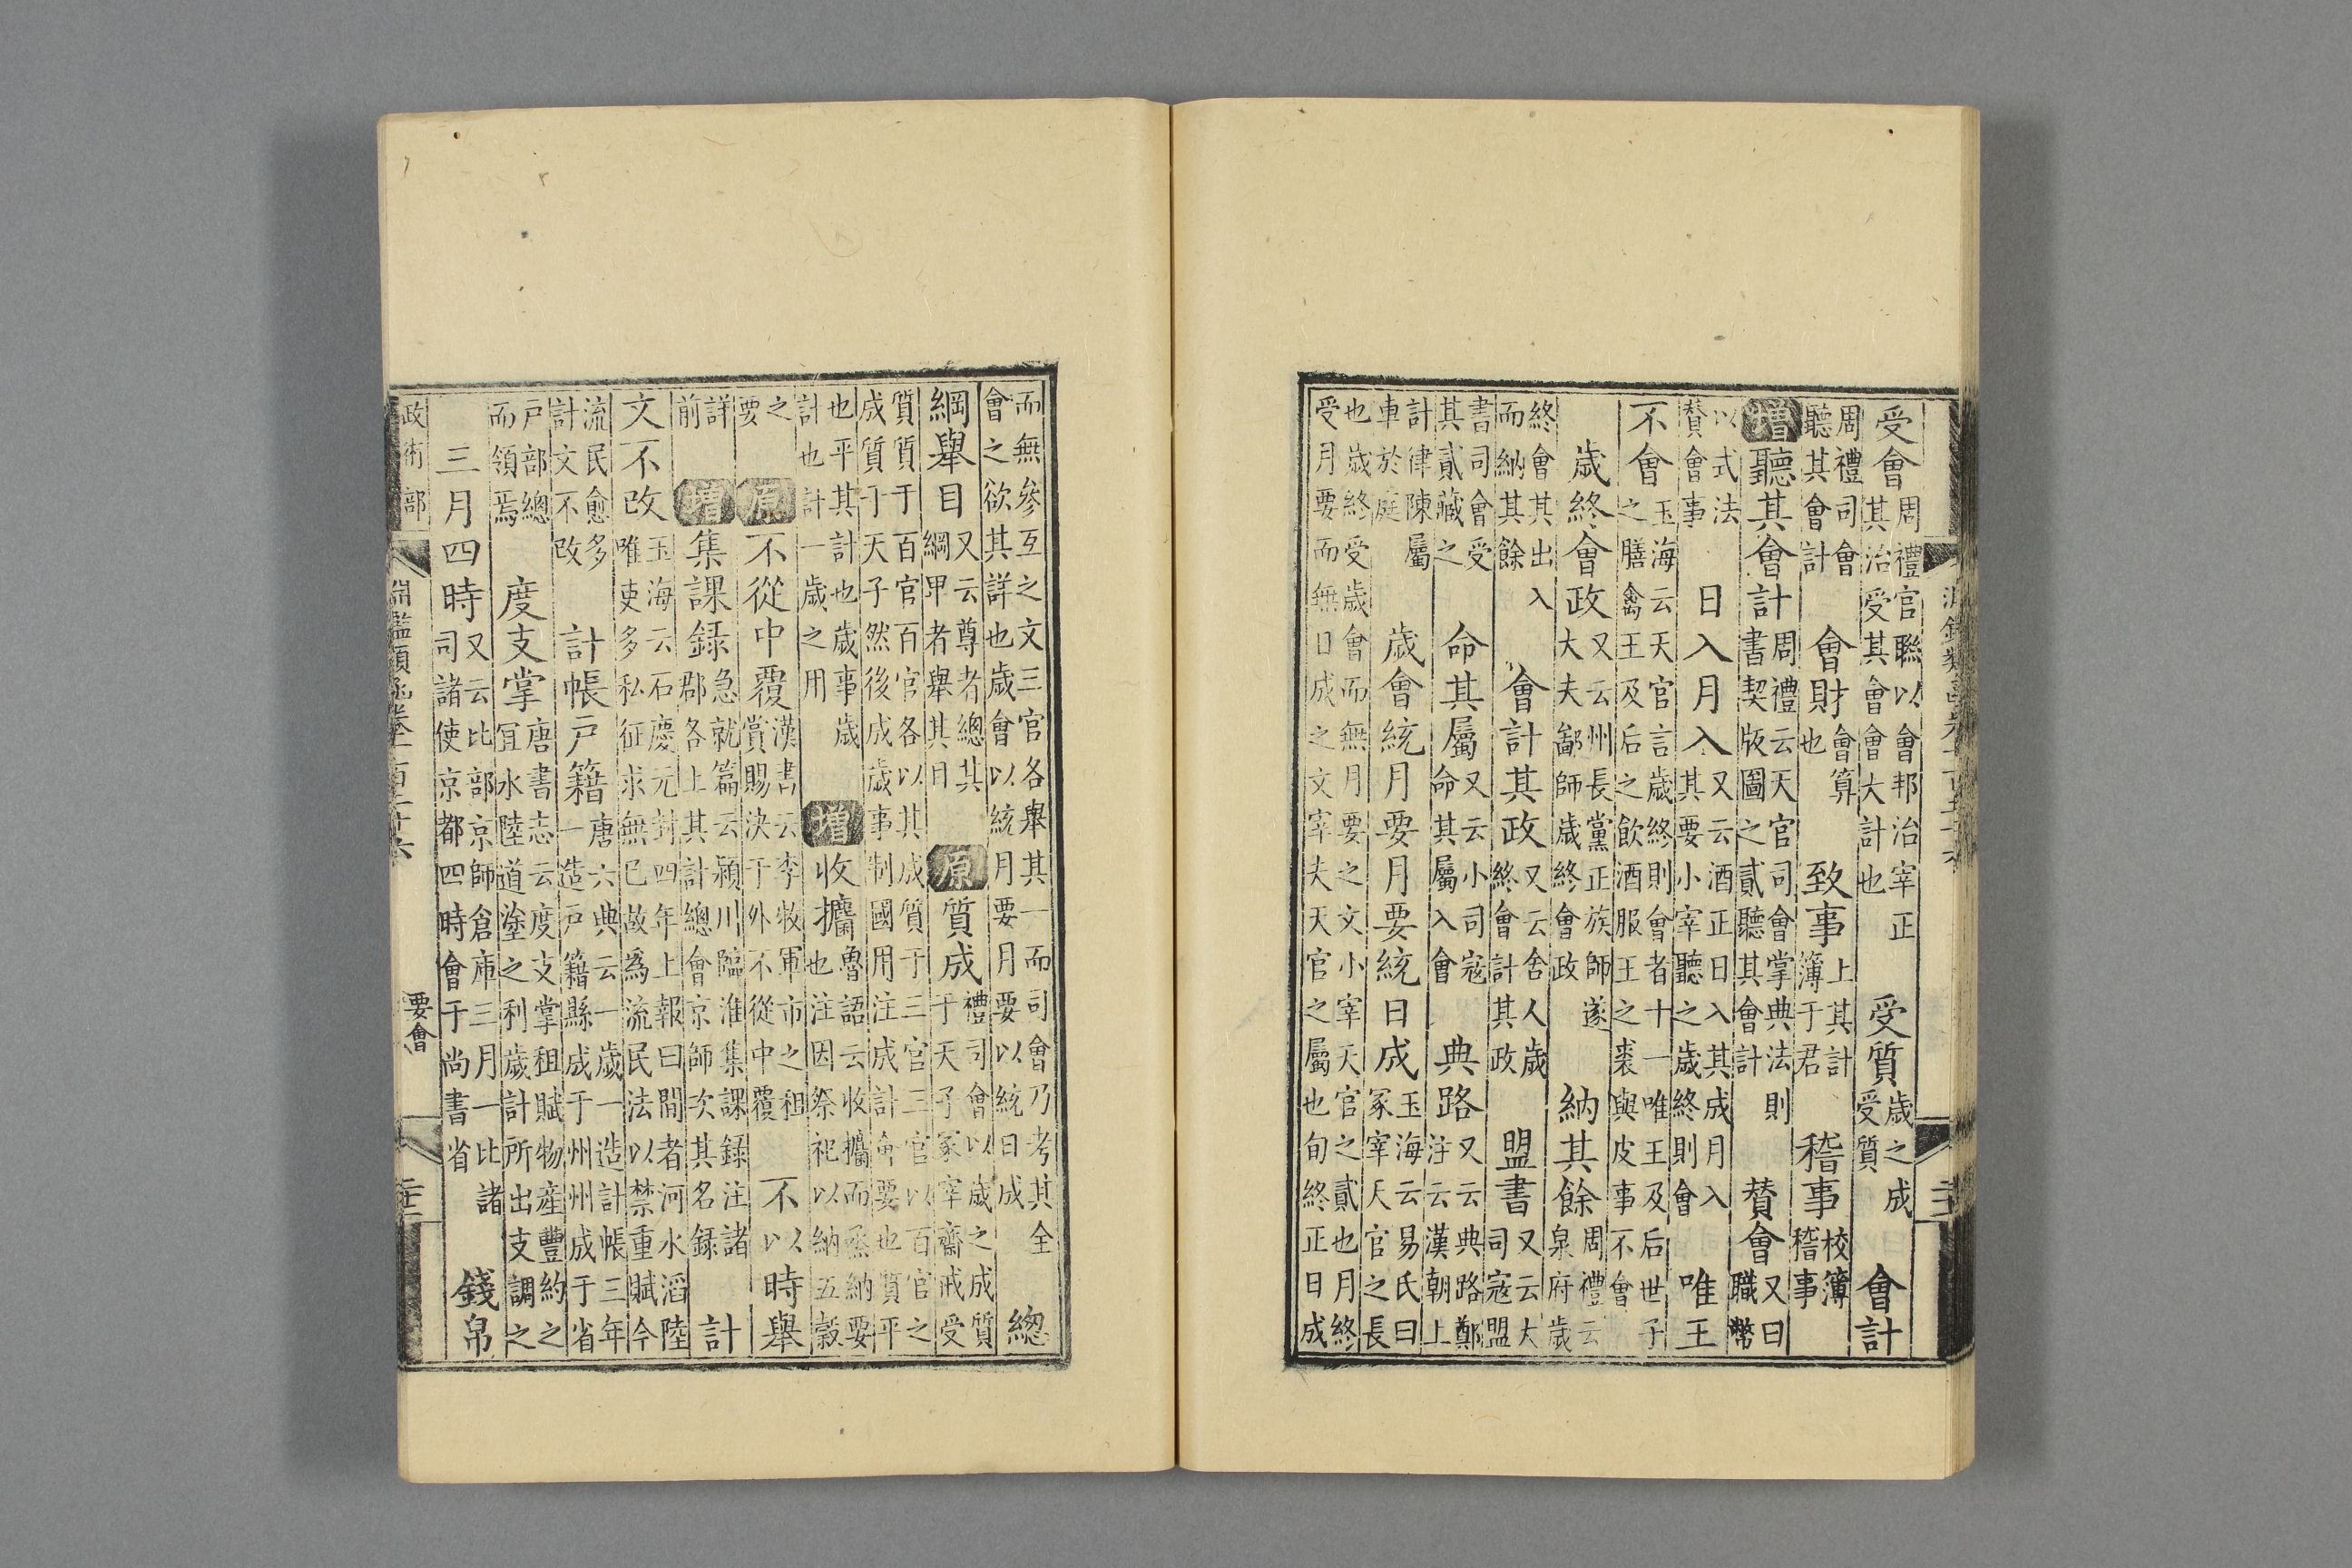 受會周禮官聯以會邦治宰正其治受其會會大計也　受質歲之成受質　會計
周禮司會聽其會計　會財會算也　致事上其計簿于君　稽事校簿稽事
增聽其會計周禮云天官司會掌典法則書契版圖之貳聽其會計　贊會又曰職幣
以式法贊會事　日入月入又云酒正日入其成月入其要小宰聽之歲終則會　唯王
不會玉海云天官言歲終則會者十一唯王及后世子之膳禽王及后之飲酒服王之裘與皮事不會
歲終會政又云州長黨正族師遂大夫鄙師歲終會政　納其餘周禮云泉府歲
終會其出入而納其餘　會計其政又云舍人歲終會計其政　盟書又云大司寇盟
書司會受其貳藏之　命其屬又云小司寇命其屬入會　典路又云典路鄭注云漢朝上
計律陳屬車於庭　歲會統月要月要統日成玉海云易氏曰冢宰天官之長
也歲終受歲會而無月要之文小宰天官之貳也月終受月要而無日成之文宰夫天官之屬也旬終正日成
而無參互之文三官各舉其一而司會乃考其全會之欲其詳也歲會以統月要月要以統日成　總
綱舉目又云尊者總其綱甲者舉其目　原質成禮司會以歲之成質于天子冢宰齋戒受
質質于百官百官各以其成質于三官三官以百官之成質于天子然後成歲事制國用注成計會要也質平
也平其計也歲事歲計也計一歲之用　增收攟魯語云收攟而烝納要也注因祭祀以納五穀
之要　原不從中覆漢書云李牧軍市之租賞賜決于外不從中覆　不以時舉
詳前　增集課錄急就篇云潁川臨淮集課錄注諸郡各上其計總會京師次其名錄　計
文不改玉海云石慶元封四年上報曰閒者河水滔陸唯吏多私征求無已故爲流民法以禁重賦今
流民愈多計文不改　計帳戸籍唐六典云一歲一造計帳三年一造戸籍縣成于州州成于省
戸部總而領焉　度支掌唐書志云度支掌租賦物產豐約之宜水陸道塗之利歲計所出支調之
三月四時又云比部京師倉庫三月一比諸司諸使京都四時會于尚書省　錢帛
政術部　淵鑑類函卷一百二十六　要會